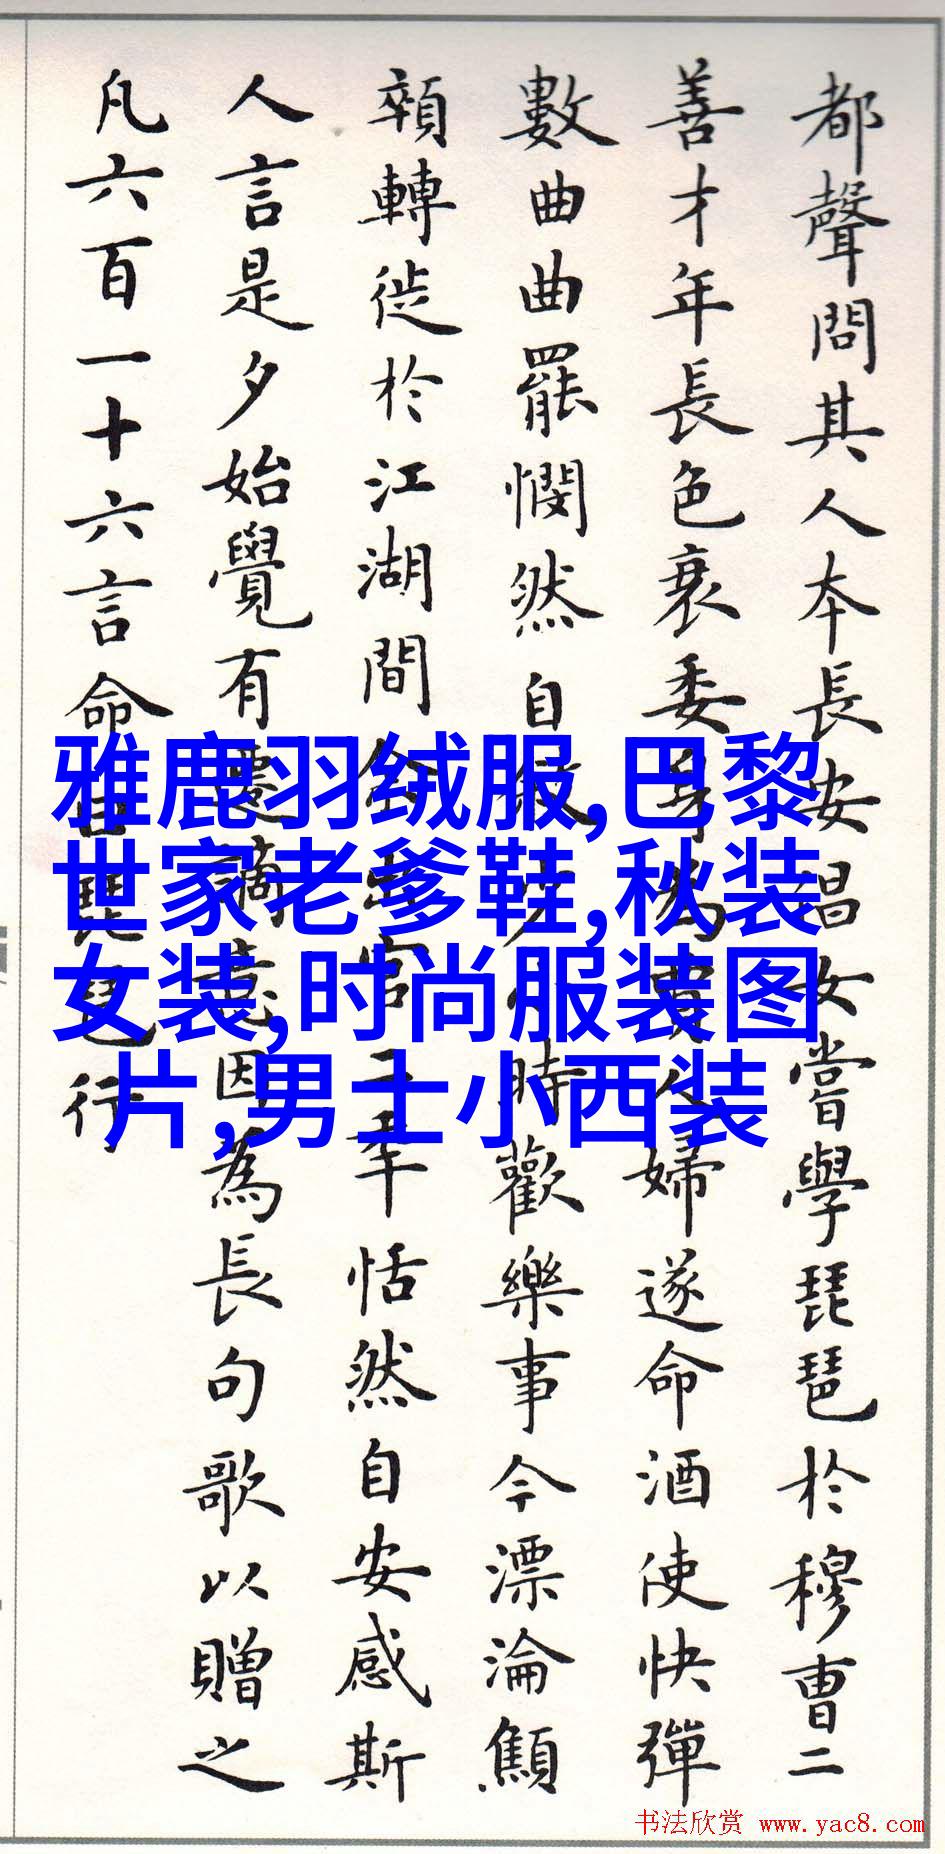 都聲問其人本長安倡女嘗學琵琶於穆曹二
善才年長色衰委身為賈人婦遂命酒使快彈
數曲曲罷憫然自敘少小時歡樂事今漂淪顦
顇轉徙於江湖間余出官二年恬然自安感斯
人言是夕始覺有遷謫意因為長句歌以贈之
凡六百一十六言命曰琵琶行
雅鹿羽绒服,巴黎
世家老爹鞋,秋装
女装,时尚服装图
片,男士小西装
书法欣赏 www.yac8.com